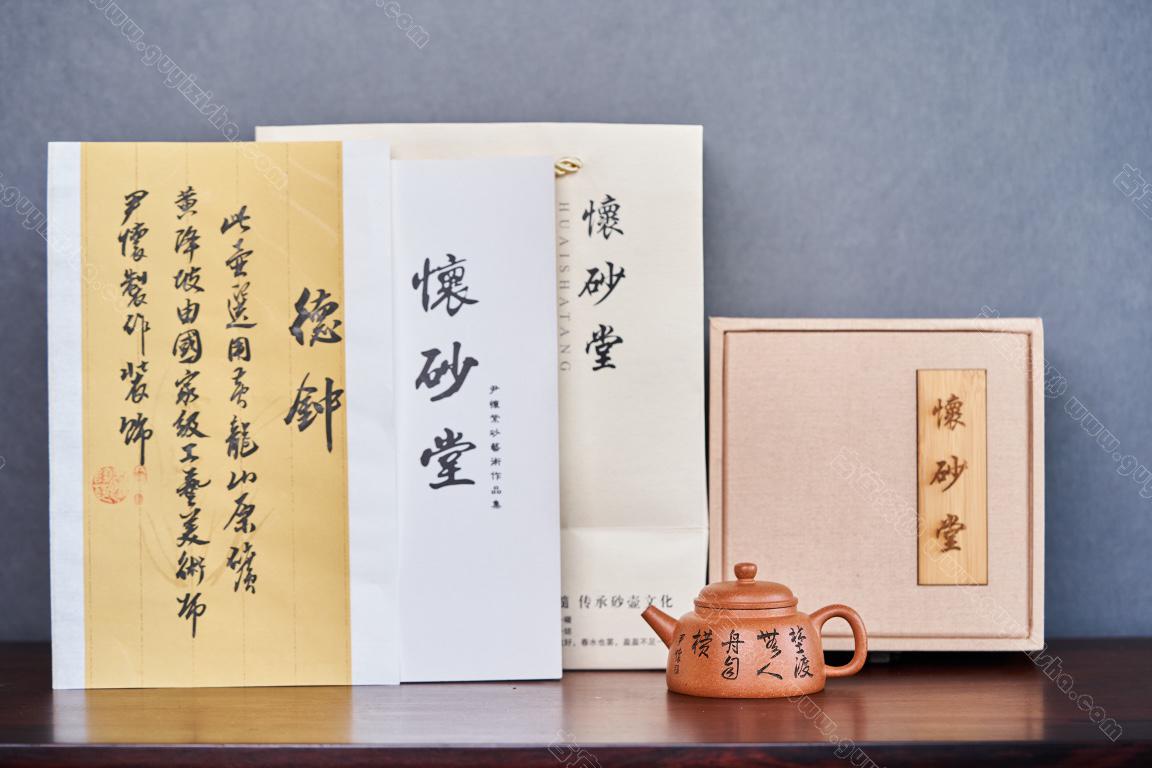 德鈡
此壶選用黄龍山原礦
黄降坡由國家級工藝美術师
尹懷製作装飾
懷砂堂
尹懷紫砂藝術作品集
懷砂堂
HUAISHATANG
传承砂壶文化
懷砂堂
埜渡
無人
舟自
橫
尹懷
www.guyizisha.com